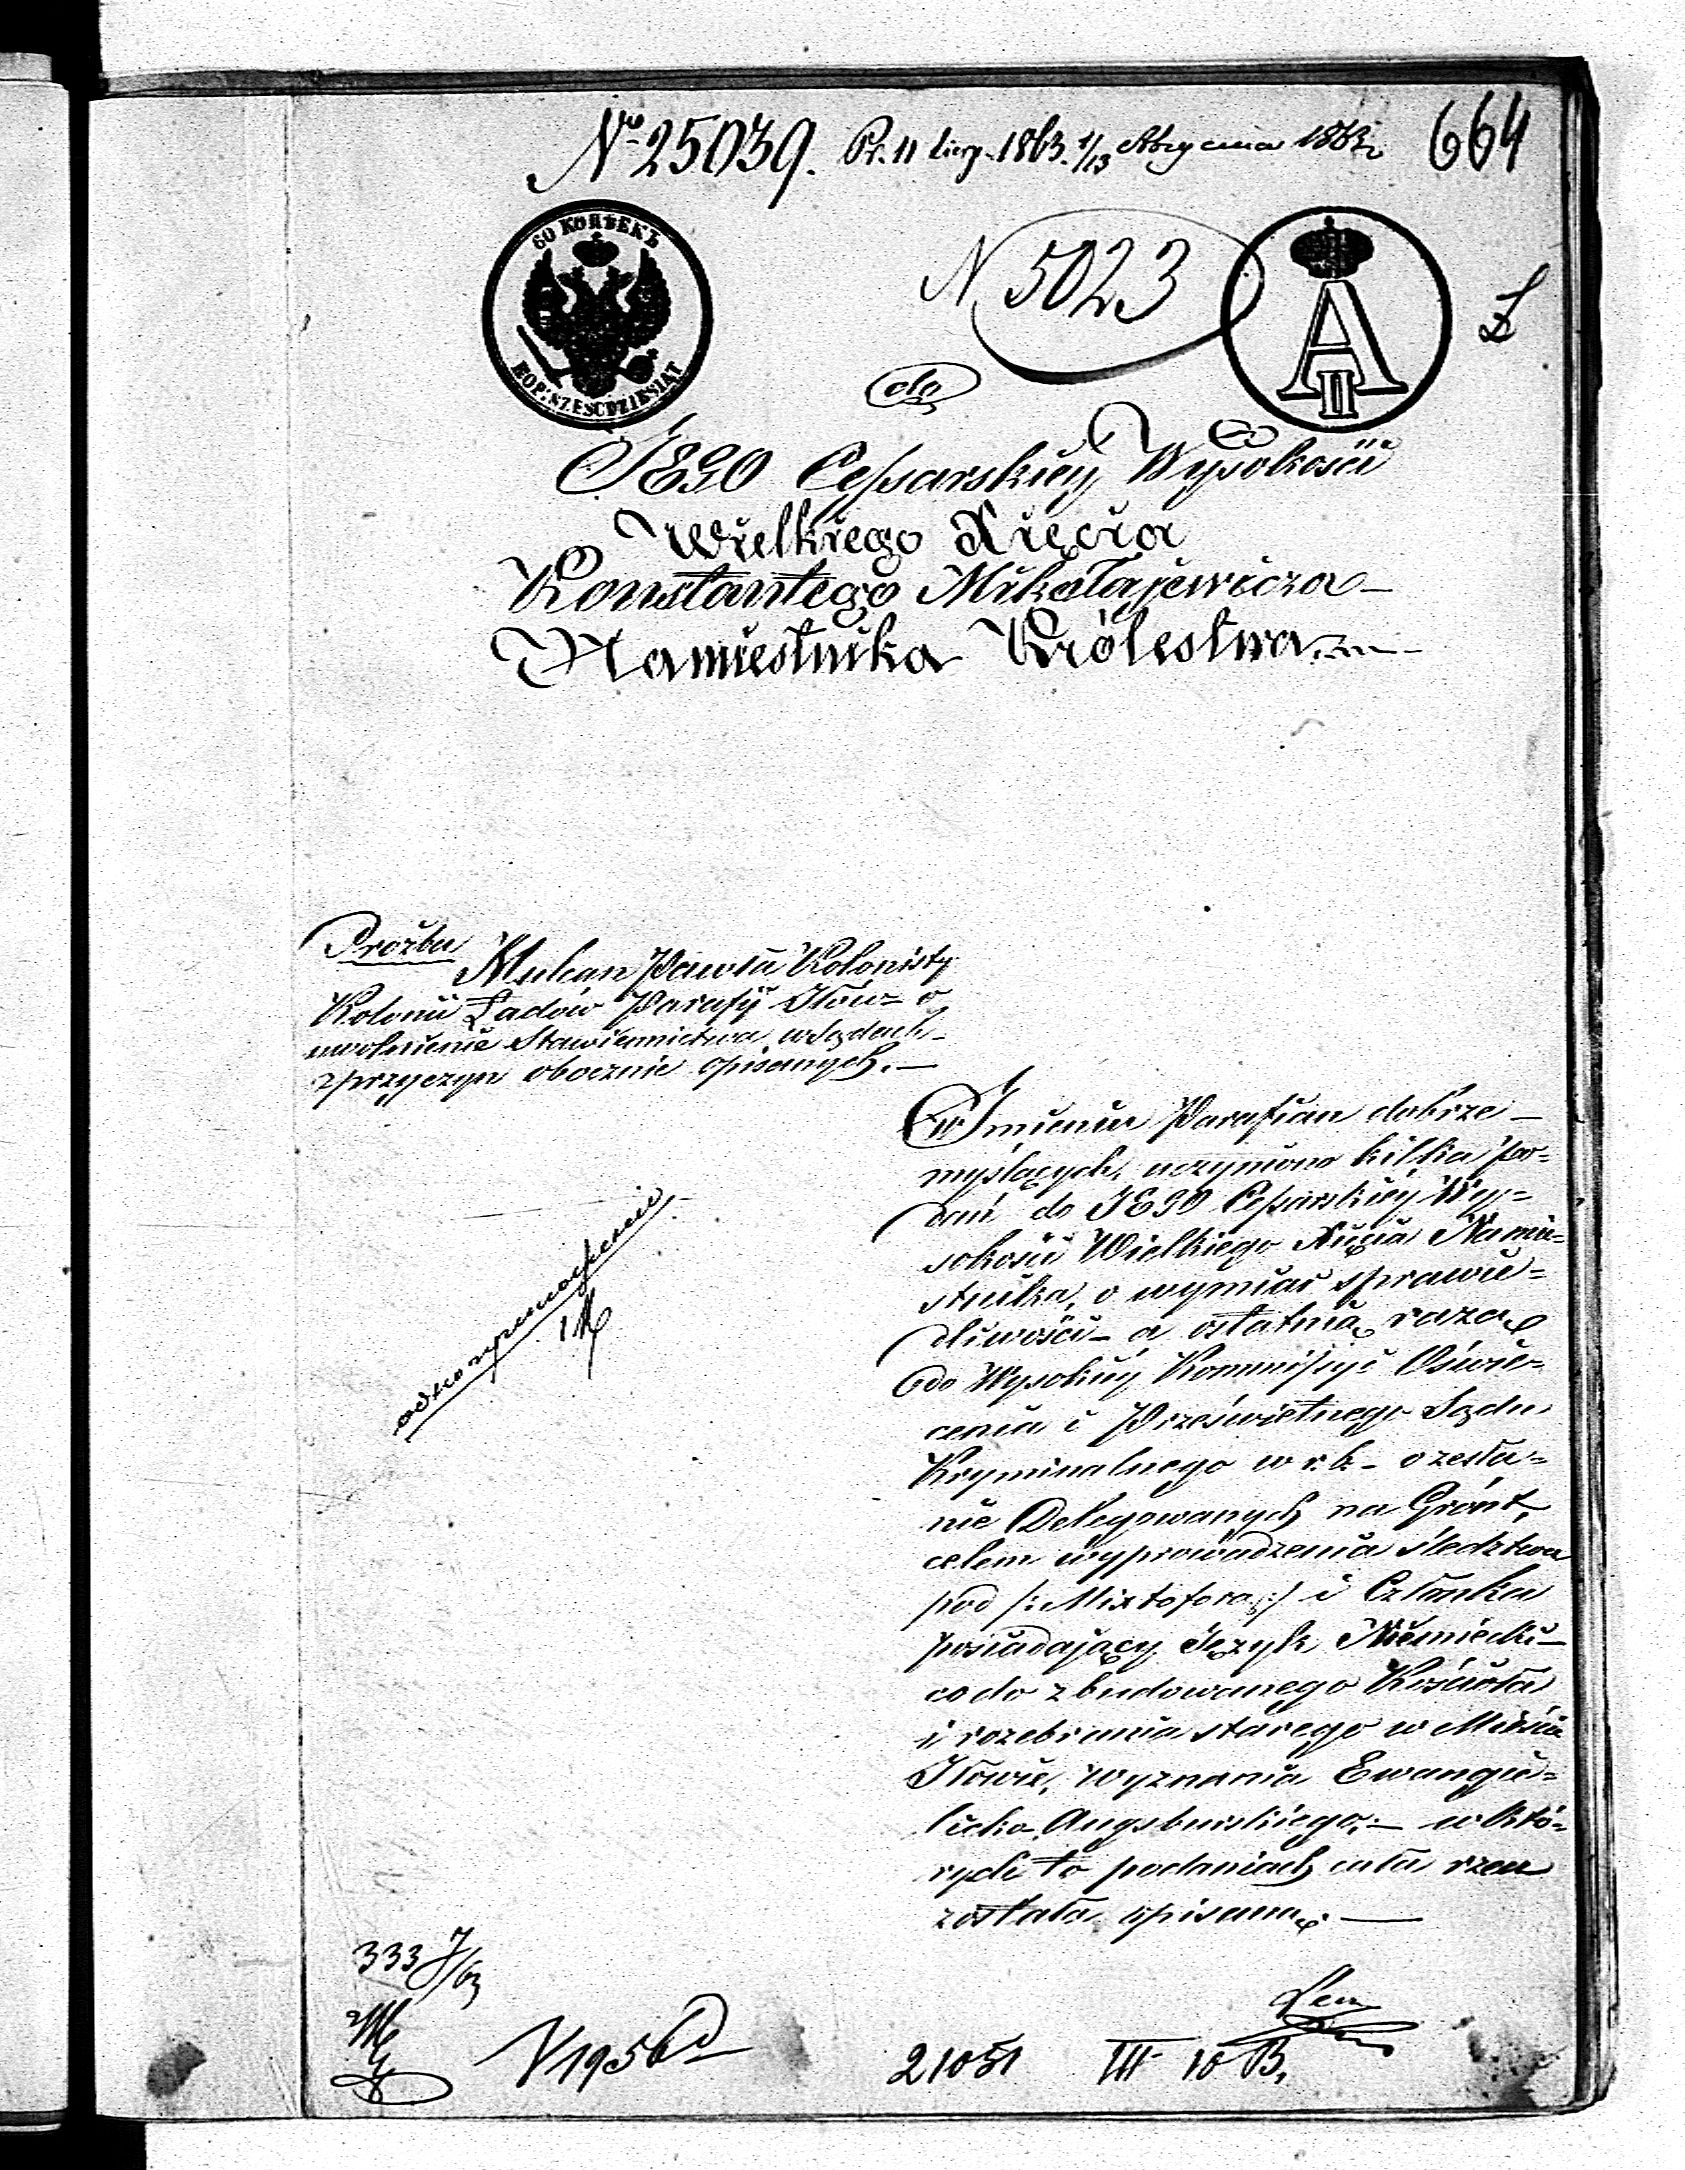 № 25039. Pr. 11 Sierp. 1863. 1/13 Stycznia 1863 664
60 КОПѢЕКЪ
KOP: SZEŚĆDZIESIĄT
N 5023
A II
do
JEGO Cessarskiéy Wysokości
Wielkiego Xięcia
Konstantego Mikołajewicza
Namiestnika Królestwa
Prożba
Pawła Kolonisty
Kolonii Ładów Parafij Iłów o
uwolnienie Stawiennictwa w Sądach
z przyczyn obocznie opisanych. —
w Imieniu Parafian dobrze —
myślących, uczyniono kilka po=
dań do JEGO Cessarskiéy Wy=
sokości Wielkiego Xięcia Namie=
stnika, o wymiar sprawie=
dliwości — a ostatnią razą
do Wysokiéy Kommissyi Oświe=
cenia i Prześwietnego Sądu
Kryminalnego w r. b. o zesła=
nie Delegowanych na Grónt,
celem wyprowadzenia śledztwa
pod /: Mixtofora :/ i Członka
posiadający Język Niemiecki —
co do zbudowanego Kościoła
i rozebrania starego w Mieście
Iłowie, wyznania Ewangie=
licko Augsburskiego, — w któ=
rych to podaniach cała rzecz
została opisaną. —
333 7/63
N 1956
21051 III 10 B.